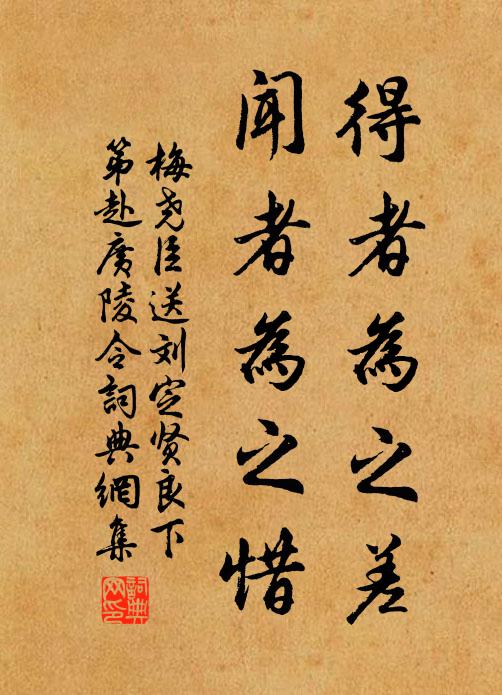 得者為之差
聞者為之惜
梅尧臣送刘定贤良下
第赴廣陵令詞典網集
詞典
网印